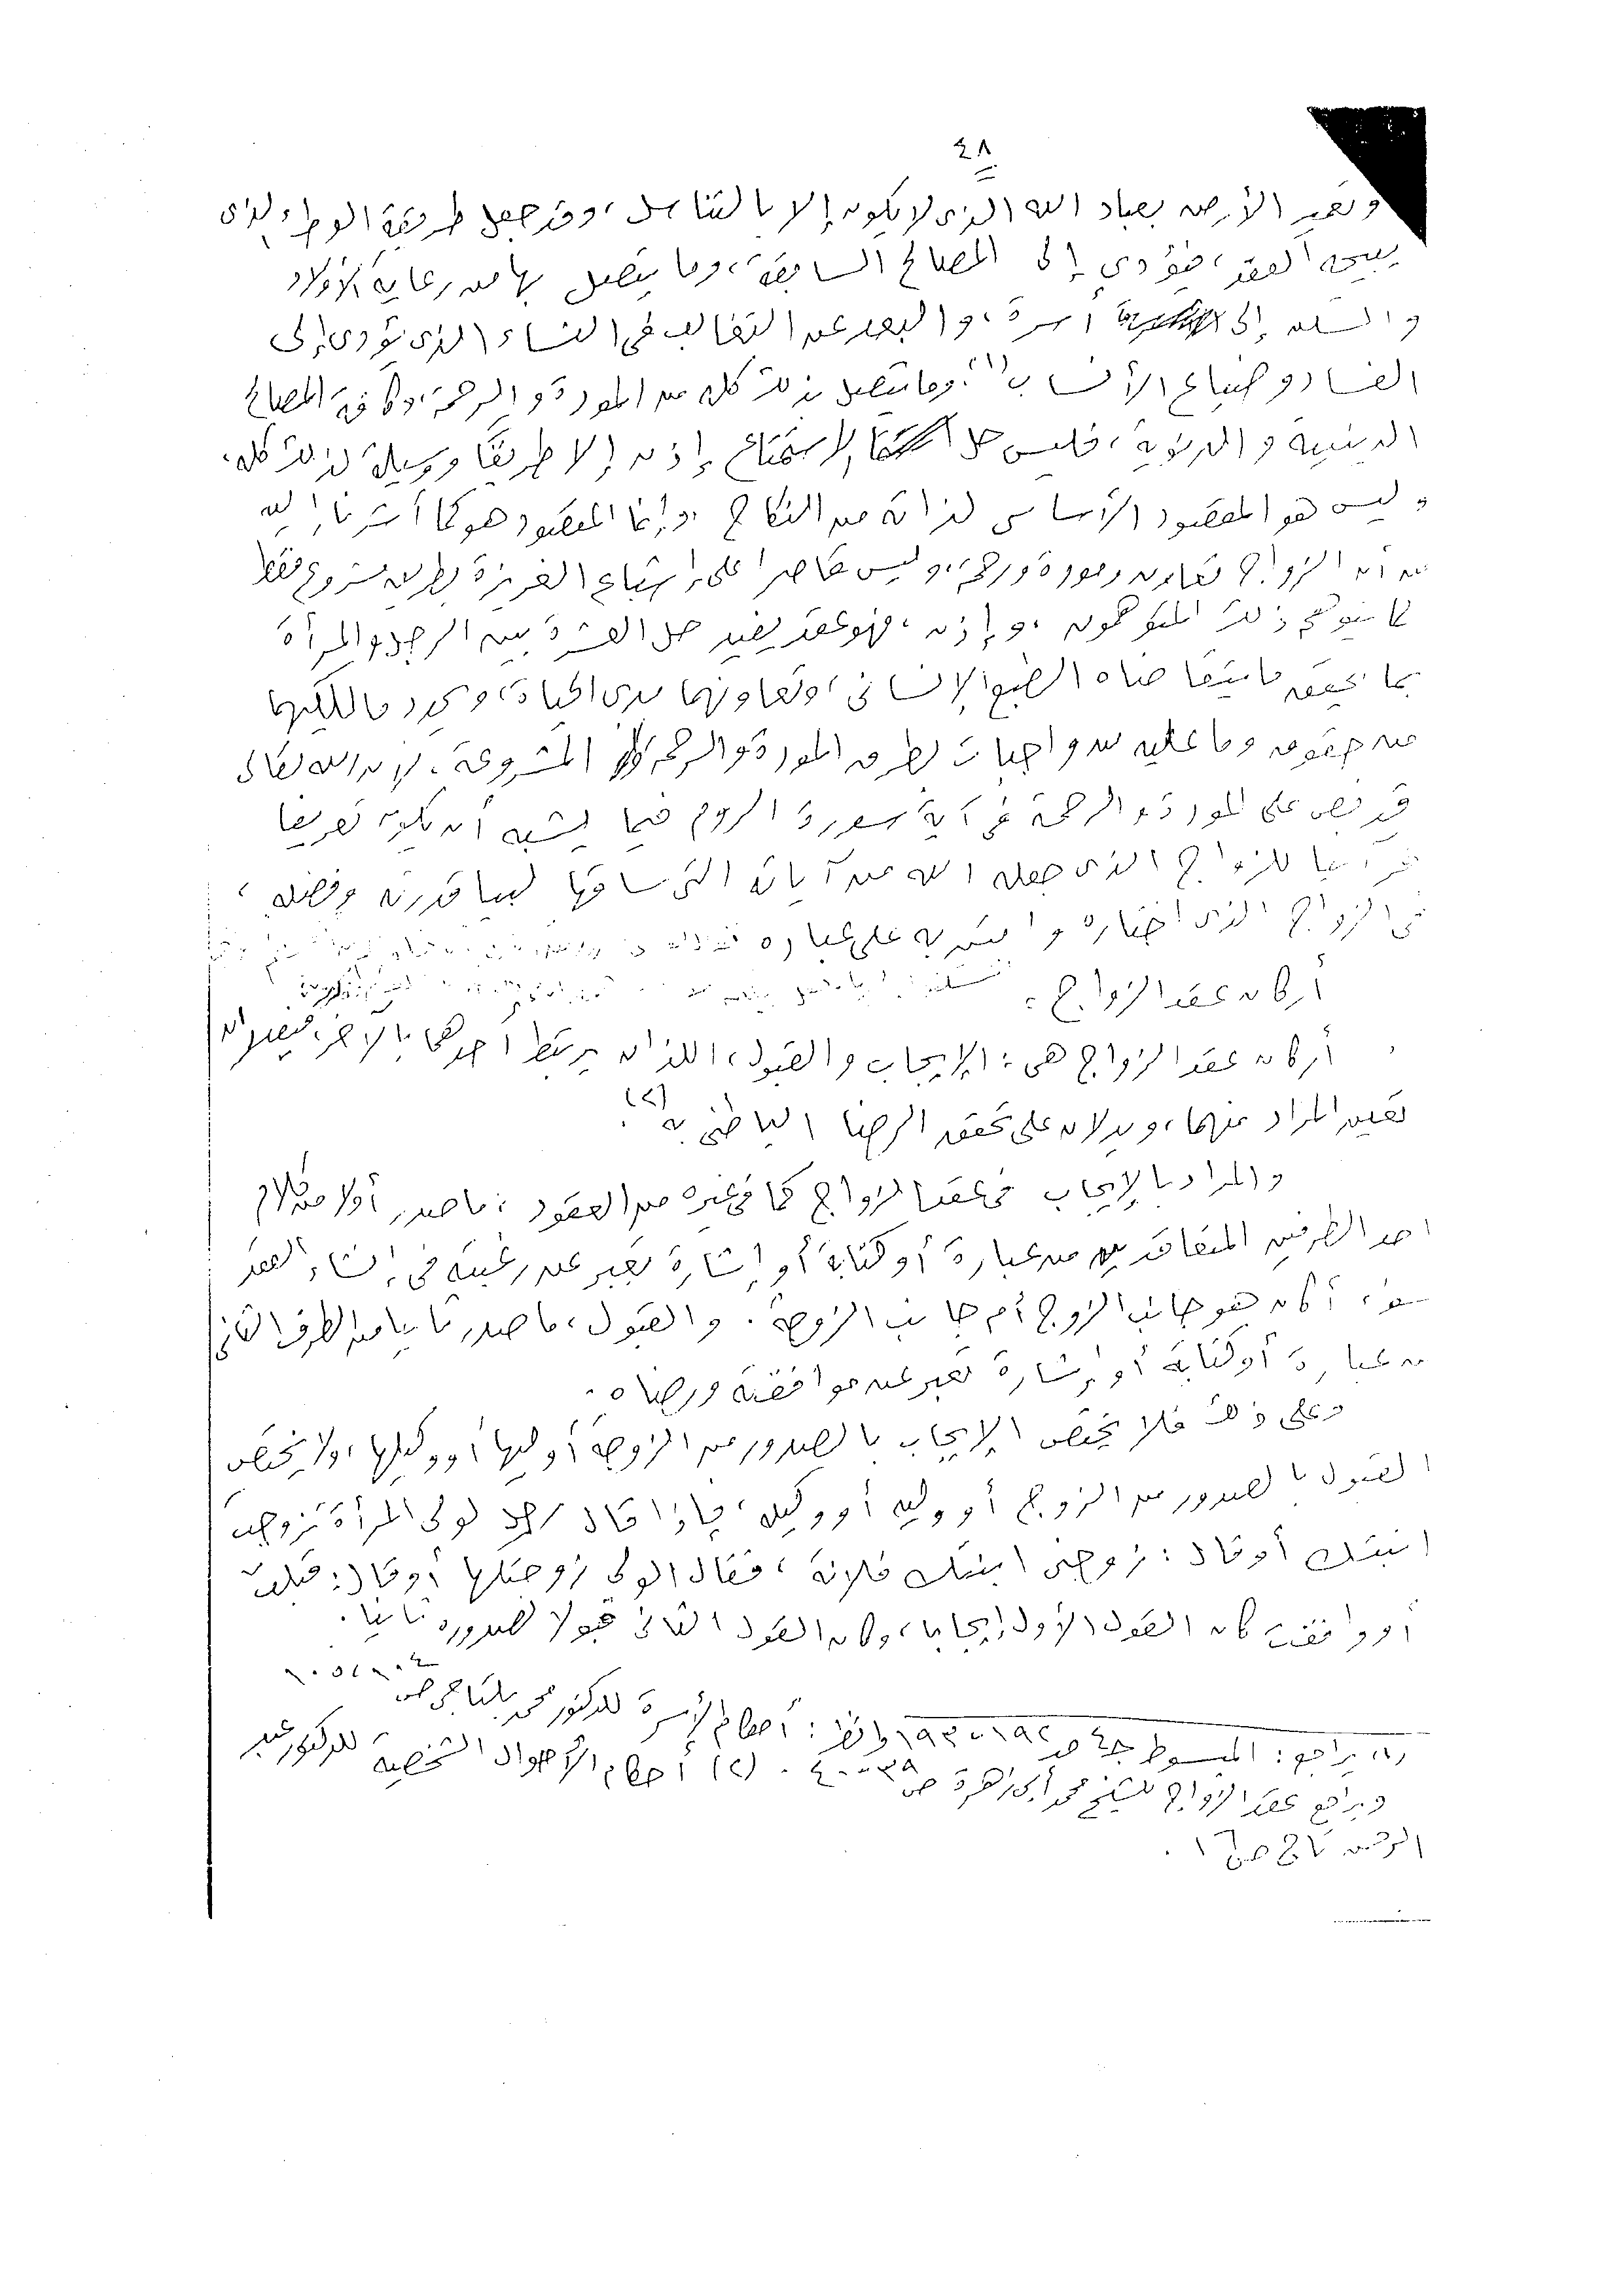 ٤٨
وتعمير الأرض بعباد الله الذي لا يكون إلا بالتناسل، وقد جعل طريقة الوطء الذى
يبيحه العقد، فيؤدي إلى المصالح السابقة، وما يتصل بها من رعاية الأولاد
والسكن إلى أسرة، والبعد عن التغالب فى النساء الذى يؤدى إلى
الفساد وضياع الأنساب (١). وما يتصل بذلك كله من المودة والرحمة، وكافة المصالح
الدينية والدنيوية، فليس حل الاستمتاع إذن إلا طريقا ووسيلة لذلك كله.
وليس هو المقصود الأساسى لذاته من النكاح، وإنما المقصود هو كما أشرنا إليه
من أن الزواج تعاون ومودة ورحمة، وليس قاصرا على إشباع الغريزة بطريق مشروع فقط
كما يتوهم ذلك المتوهمون، وإذن، فهو عقد يفيد حل العشرة بين الرجل والمرأة
بما يحقق ما يتقاضاه الطبع الإنسانى، وتعاونهما مدى الحياة، ويحدد ما لكليهما
من حقوق وما عليه من واجبات بطرق المودة والرحمة المشروعة. لأن الله تعالى
قد نص على المودة والرحمة فى آية سورة الروم فيما يشبه أن يكون تعريفا
قرآنيا للزواج الذى جعله الله من آياته التى ساقها لبيان قدرته وفضله،
فى الزواج الذى اختاره وامتن به على عباده
أركان عقد الزواج:
أركان عقد الزواج هى: الإيجاب والقبول، اللذان يرتبط أحدهما بالآخر فيفيدان
تعيين المراد منهما، ويدلان على تحقق الرضا الباطنى به (٢).
والمراد بالإيجاب فى عقد الزواج كما فى غيره من العقود: ما صدر أولا من كلام
أحد الطرفين المتعاقدين من عبارة أو كتابة أو إشارة تعبر عن رغبته فى إنشاء العقد
سواء أكان هو جانب الزوج أم جانب الزوجة. والقبول، ما صدر ثانيا من الطرف الثانى
من عبارة أو كتابة أو إشارة تعبر عن موافقته ورضاه.
وعلى ذلك فلا يختص الإيجاب بالصدور من الزوجة أو وليها أو وكيلها، ولا يختص
القبول بالصدور من الزوج أو وليه أو وكيله، فإذا قال رجل لولى المرأة تزوجت
ابنتك أو قال: زوجنى ابنتك فلانة، فقال الولى زوجتكها أو قال: قبلت
أو وافقت كان القول الأول إيجابا، وكان القول الثانى قبولا لصدوره ثانيا.
(١) يراجع: المبسوط جـ٤ صـ ١٩٢، ١٩٣ وانظر: أحكام الأسرة للدكتور محمد بلتاجى صـ
ويراجع عقد الزواج للشيخ محمد أبى زهرة صـ ٣٩، ٤٠. (٢) أحكام الأحوال الشخصية للدكتور عبد
الرحمن تاج صـ